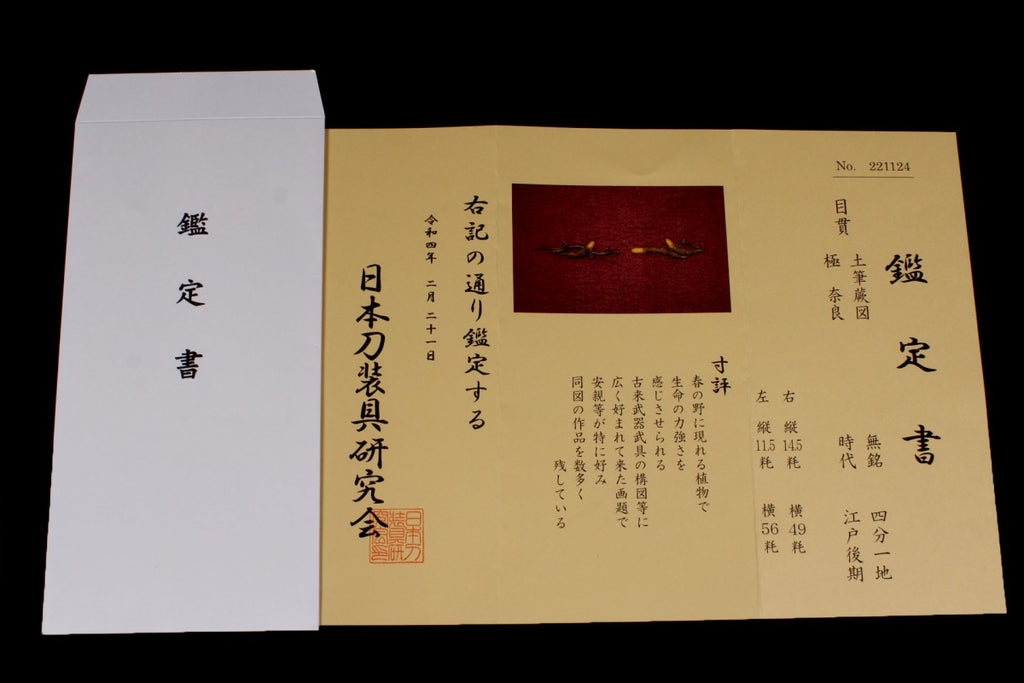 鑑定書
No. 221124
鑑定書
目貫 土筆蕨図 無銘 四分一地
極 奈良 時代 江戸後期
右 縦14.5粍 横49粍
左 縦11.5粍 横56粍
寸評
春の野に現れる植物で
生命の力強さを
感じさせられる
古来武器武具の構図等に
広く好まれて来た画題で
安親等が特に好み
同図の作品を数多く
残している
右記の通り鑑定する
令和四年 二月 二十一日
日本刀装具研究会
日本刀
装具研